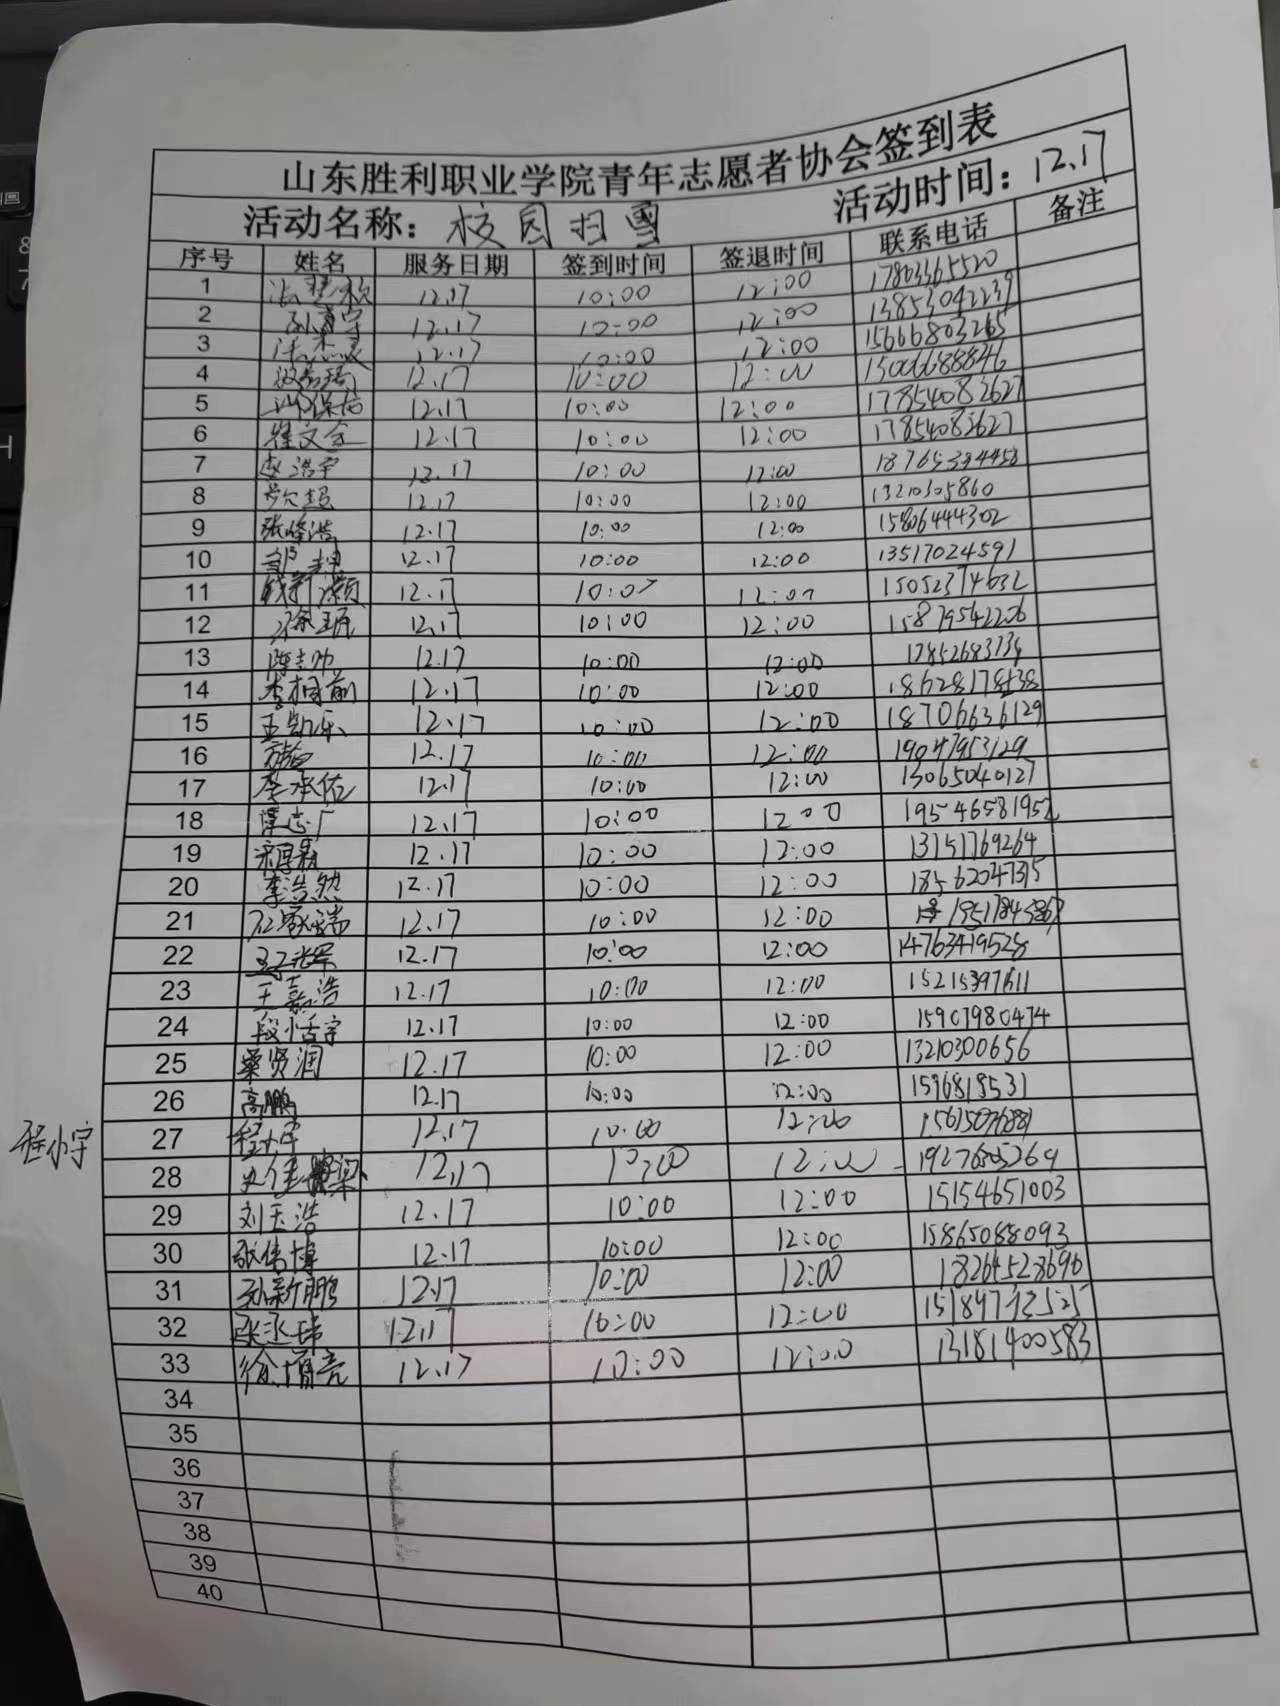 山东胜利职业学院青年志愿者协会签到表
活动名称：校园扫雪 活动时间：12.17
序号 姓名 服务日期 签到时间 签退时间 联系电话 备注
1 12.17 10:00 12:00 17863365520
2 12.17 10:00 12:00 13853042239
3 12.17 10:00 12:00 15666803265
4 12.17 10:00 12:00 15066688846
5 12.17 10:00 12:00 17854083627
6 崔文全 12.17 10:00 12:00 17854083627
7 赵浩宇 12.17 10:00 12:00 18765394458
8 12.17 10:00 12:00 13210305860
9 张峰浩 12.17 10:00 12:00 15806444302
10 12.17 10:00 12:00 13517024591
11 12.17 10:00 12:00 15052374632
12 12.17 10:00 12:00 15879542206
13 陈志帅 12.17 10:00 12:00
14 李相前 12.17 10:00 12:00 18628178538
15 王凯乐 12.17 10:00 12:00 18706636129
16 12.17 10:00 12:00 19047953129
17 李承佑 12.17 10:00 12:00 13065040127
18 12.17 10:00 12:00 19546581952
19 12.17 10:00 12:00 13751769264
20 李浩然 12.17 10:00 12:00 18562047395
21 12.17 10:00 12:00
22 12.17 10:00 12:00 14763419528
23 王嘉浩 12.17 10:00 12:00 15215397611
24 段恬宇 12.17 10:00 12:00 15907980474
25 桑贤润 12.17 10:00 12:00 13210300656
26 高鹏 12.17 10:00 12:00 1596818531
程小宇 27 程小宇 12.17 10:00 12:00
28 12.17 10:00 12:00 19276305269
29 刘玉浩 12.17 10:00 12:00 15154651003
30 张伟博 12.17 10:00 12:00 15865088093
31 孙新鹏 12.17 10:00 12:00 18264528696
32 12.17 10:00 12:00
33 徐增亮 12.17 10:00 12:00 13181400583
34
35
36
37
38
39
40